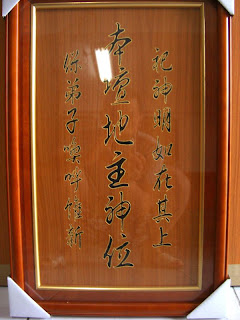 祀神明如在其上
本壇地主神位
保弟子喚呼惟新